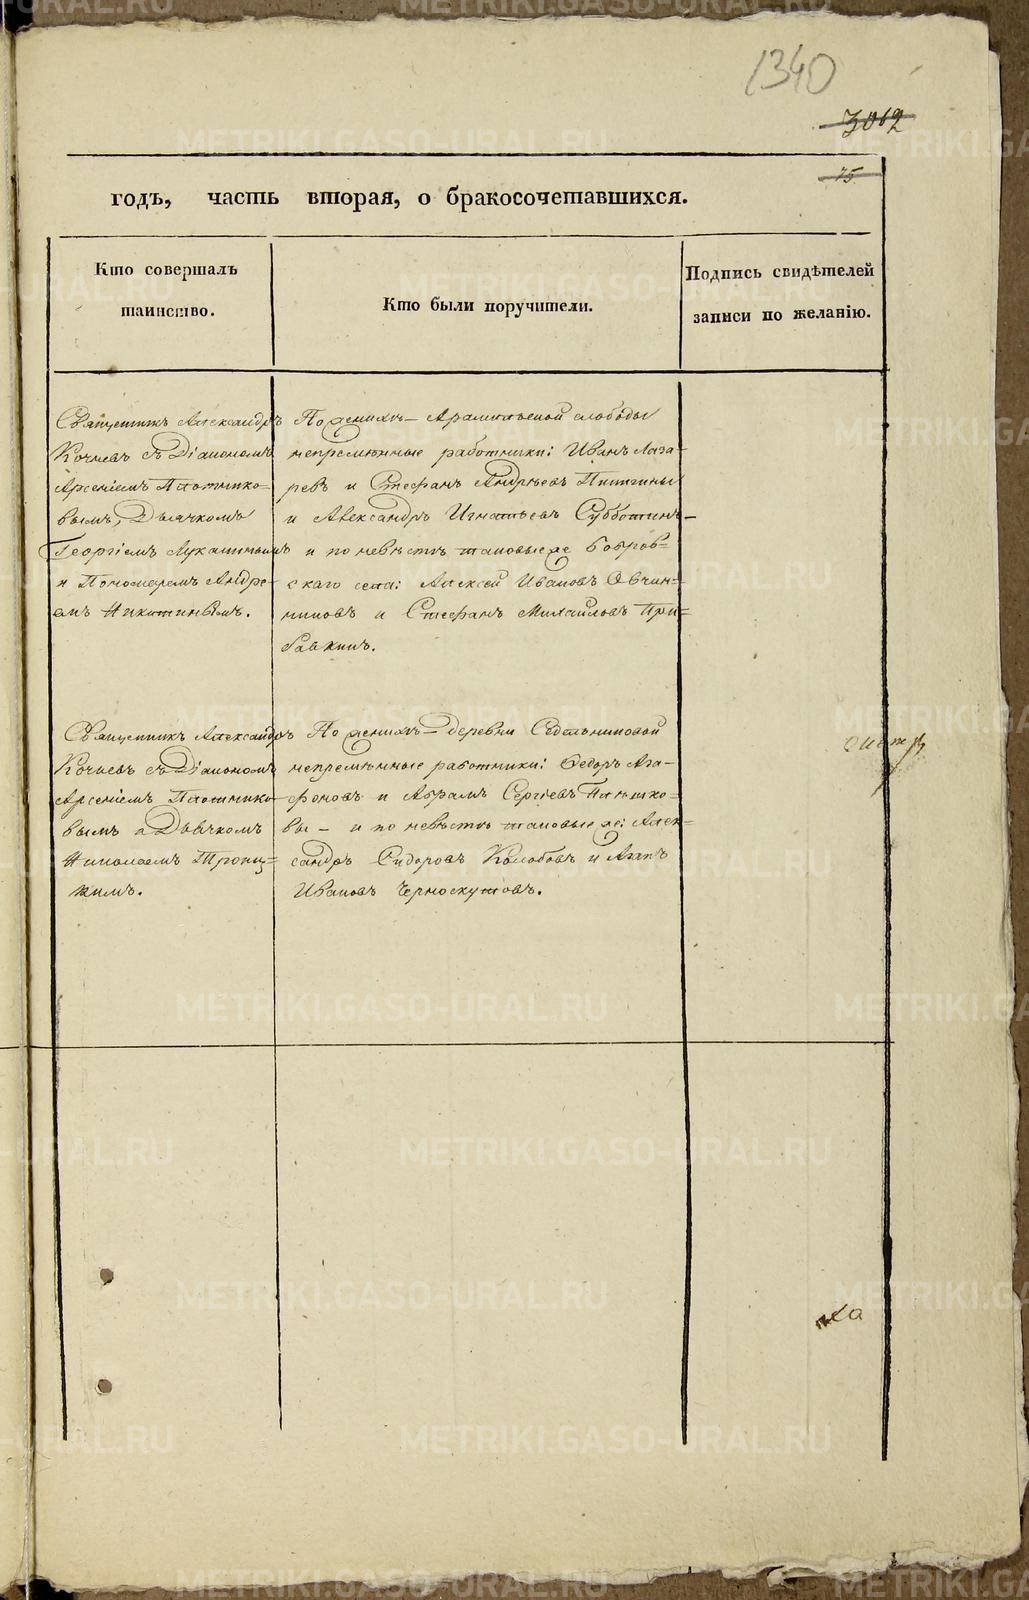 1340
3012
15
годъ, часть вторая, о бракосочетавшихся.
Кто совершалъ
таинство.
Кто были поручители.
Подпись свидѣтелей
записи по желанію.
Священникъ Александръ
Кочневъ съ Діакономъ
Арсеніемъ Плотнико-
вымъ, Дьячкомъ
Георгіемъ Лукинымъ
и Пономаремъ Андре-
емъ Никитинымъ.
По женихѣ – Арамильской слободы
непремѣнные работники: Иванъ Лаза-
ревъ и Стефанъ Андреевъ Пичугины
и Александръ Игнатьевъ Субботинъ –
и по невѣстѣ таковые же Бобров-
скаго села: Алексей Ивановъ Овчин-
никовъ и Стефанъ Михайловъ При-
бавкинъ.
Священникъ Александръ
Кочневъ съ Діакономъ
Арсеніемъ Плотнико-
вымъ и Дьячкомъ
Николаемъ Троиц-
кимъ.
По женихѣ – деревни Седельниковой
непремѣнные работники: Ѳедоръ Ага-
фоновъ и Абрамъ Сергіевъ Паньшко-
вы – и по невѣстѣ таковые же: Алек-
сандръ Сидоровъ Колобовъ и Агапъ
Ивановъ Черноскутовъ.
METRIKI.GASO-URAL.RU